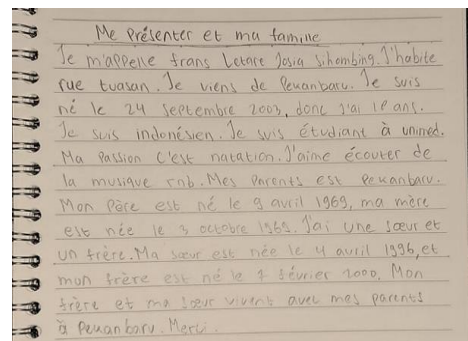 Me Présenter et ma famille
Je m'appelle frans Letare Josia Sihombing. J'habite
rue tuasan. Je viens de Pekanbaru. Je suis
né le 24 Septembre 2003, donc j'ai 18 ans.
Je suis indonésien. Je suis étudiant à unimed.
Ma Passion c'est natation. J'aime écouter de
la musique rnb. Mes Parents est Pekanbaru.
Mon Père est né le 9 avril 1969, ma mère
est née le 3 octobre 1969. J'ai une sœur et
un frère. Ma sœur est née le 4 avril 1996, et
mon frère est né le 7 février 2000. Mon
frère et ma sœur vivent avec mes parents
à Pekanbaru. Merci.